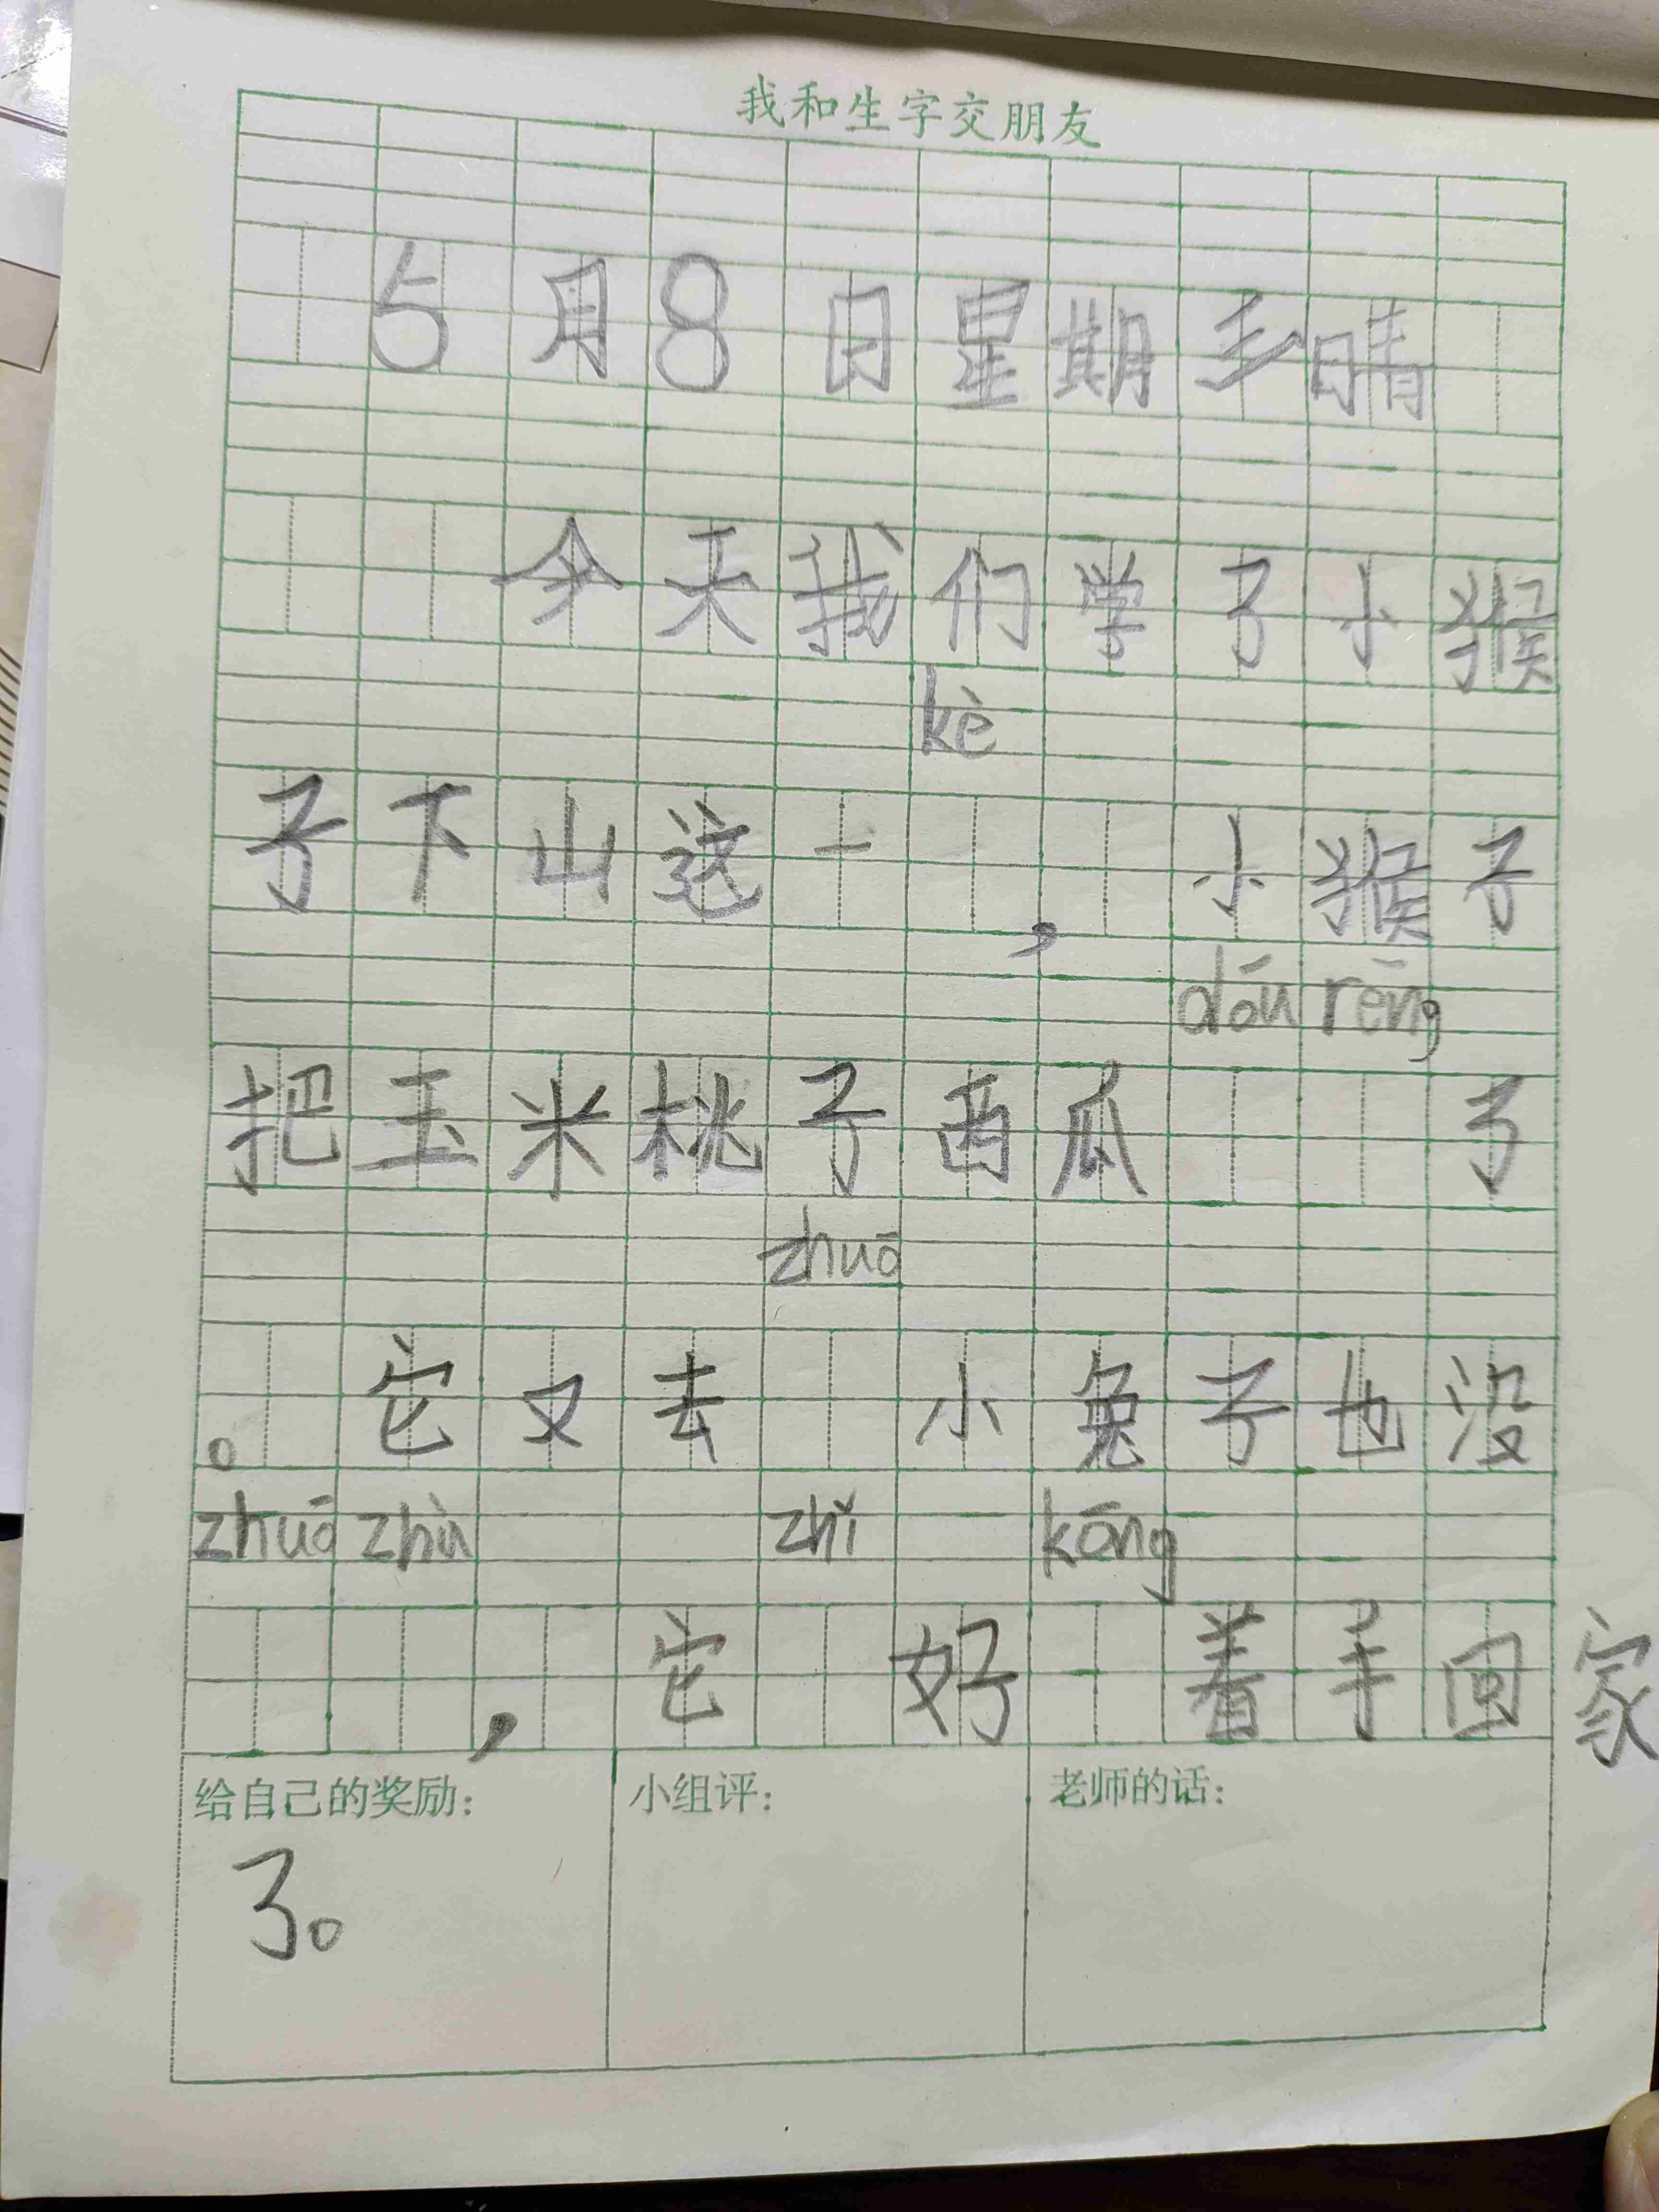 我和生字交朋友
5月8日星期 晴
今天我们学了小猴
kè
子下山这一 ，小猴子
dōu rēng
把玉米桃子西瓜 了
zhuō
。它又去 小兔子也没
zhuō zhù zhǐ kōng
，它 好 着手回家
给自己的奖励： 小组评： 老师的话：
了。